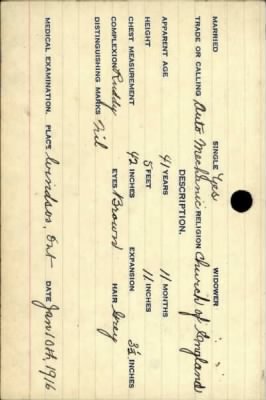 MARRIED SINGLE Yes WIDOWER
TRADE OR CALLING Auto Mechanic RELIGION Church of England
DESCRIPTION.
APPARENT AGE 41 YEARS 11 MONTHS
HEIGHT 5 FEET 11 INCHES
CHEST MEASUREMENT 42 INCHES EXPANSION 3½ INCHES
COMPLEXION Ruddy EYES Brown HAIR Grey
DISTINGUISHING MARKS Nil
MEDICAL EXAMINATION. PLACE Windsor, Ont DATE Jan 10th, 1916